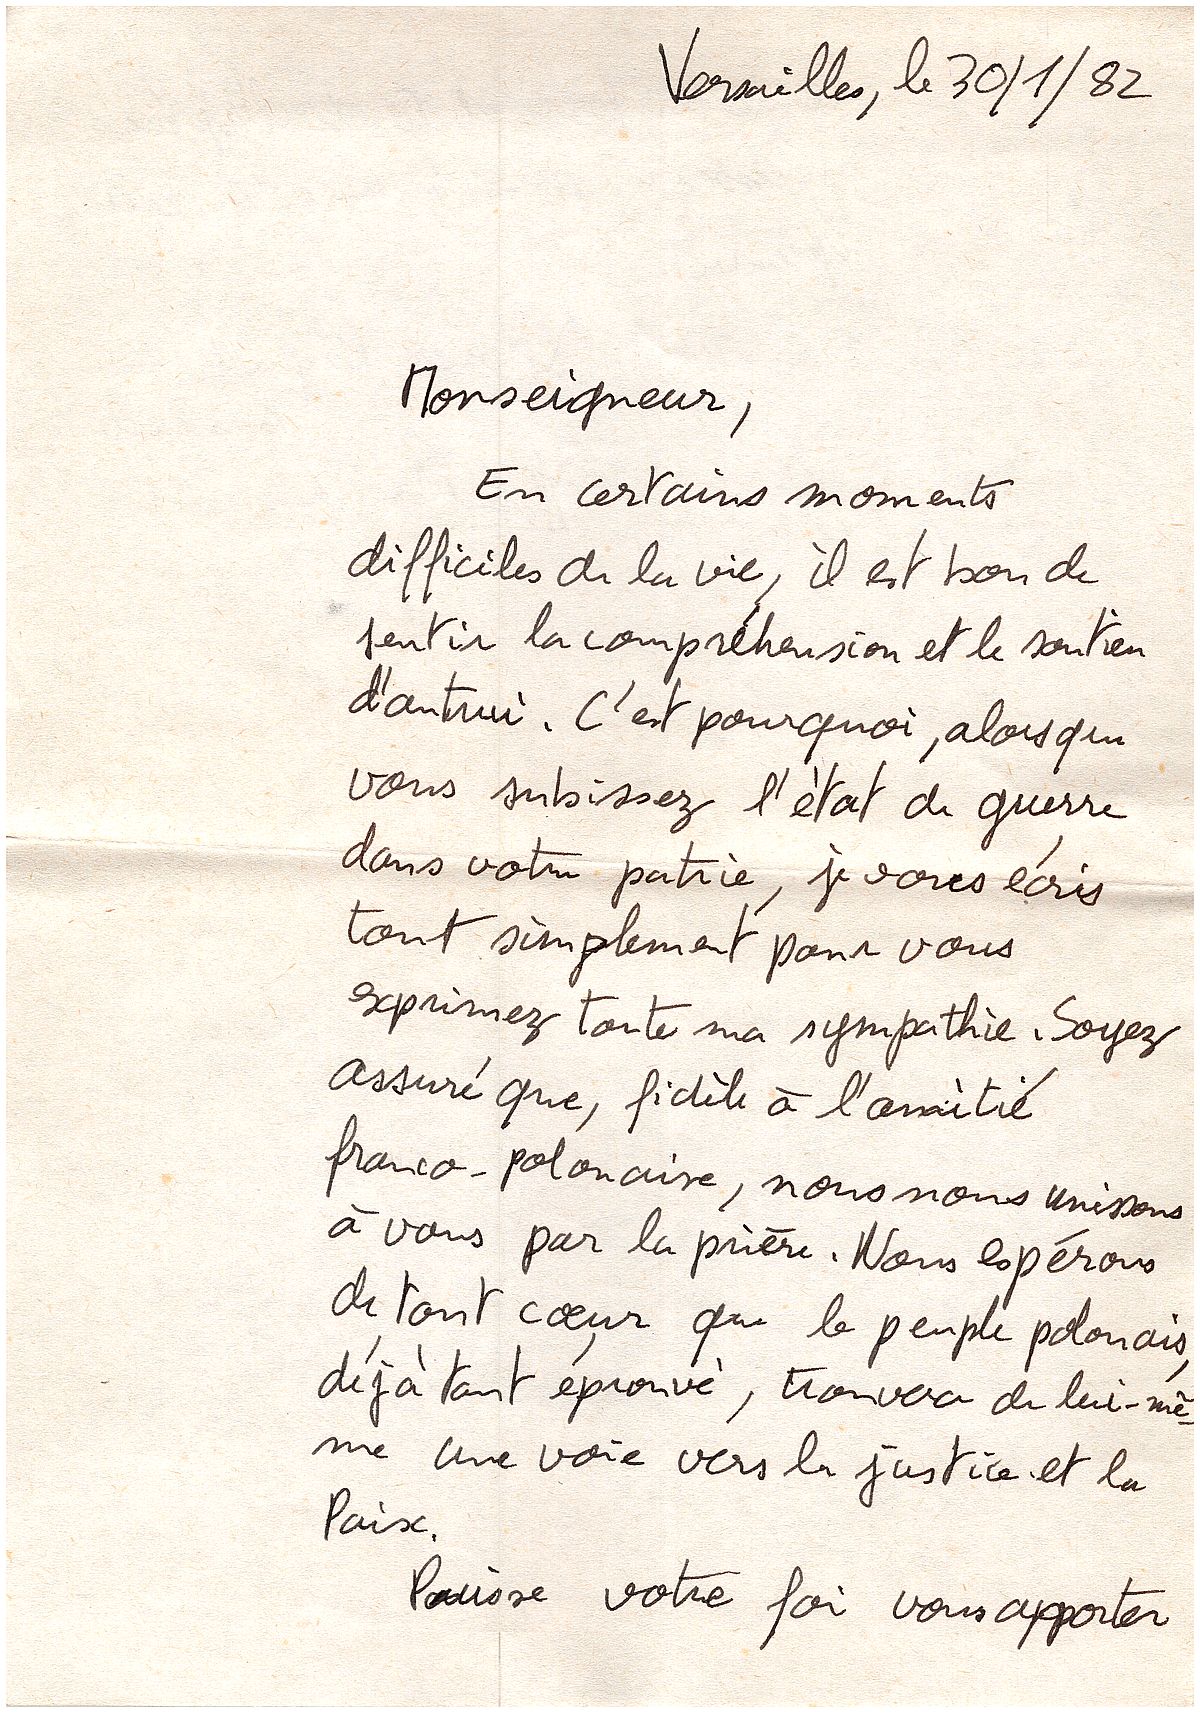 Versailles, le 30/1/82
Monseigneur,
En certains moments
difficiles de la vie, il est bon de
sentir la compréhension et le soutien
d'autrui. C'est pourquoi, alors que
vous subissez l'état de guerre
dans votre patrie, je vous écris
tout simplement pour vous
exprimez toute ma sympathie. Soyez
assuré que, fidèle à l'amitié
franco-polonaise, nous nous unissons
à vous par la prière. Nous espérons
de tout cœur que le peuple polonais,
déjà tant éprouvé, trouvera de lui-mê-
me une voie vers la justice et la
Paix.
Puisse votre foi vous apporter